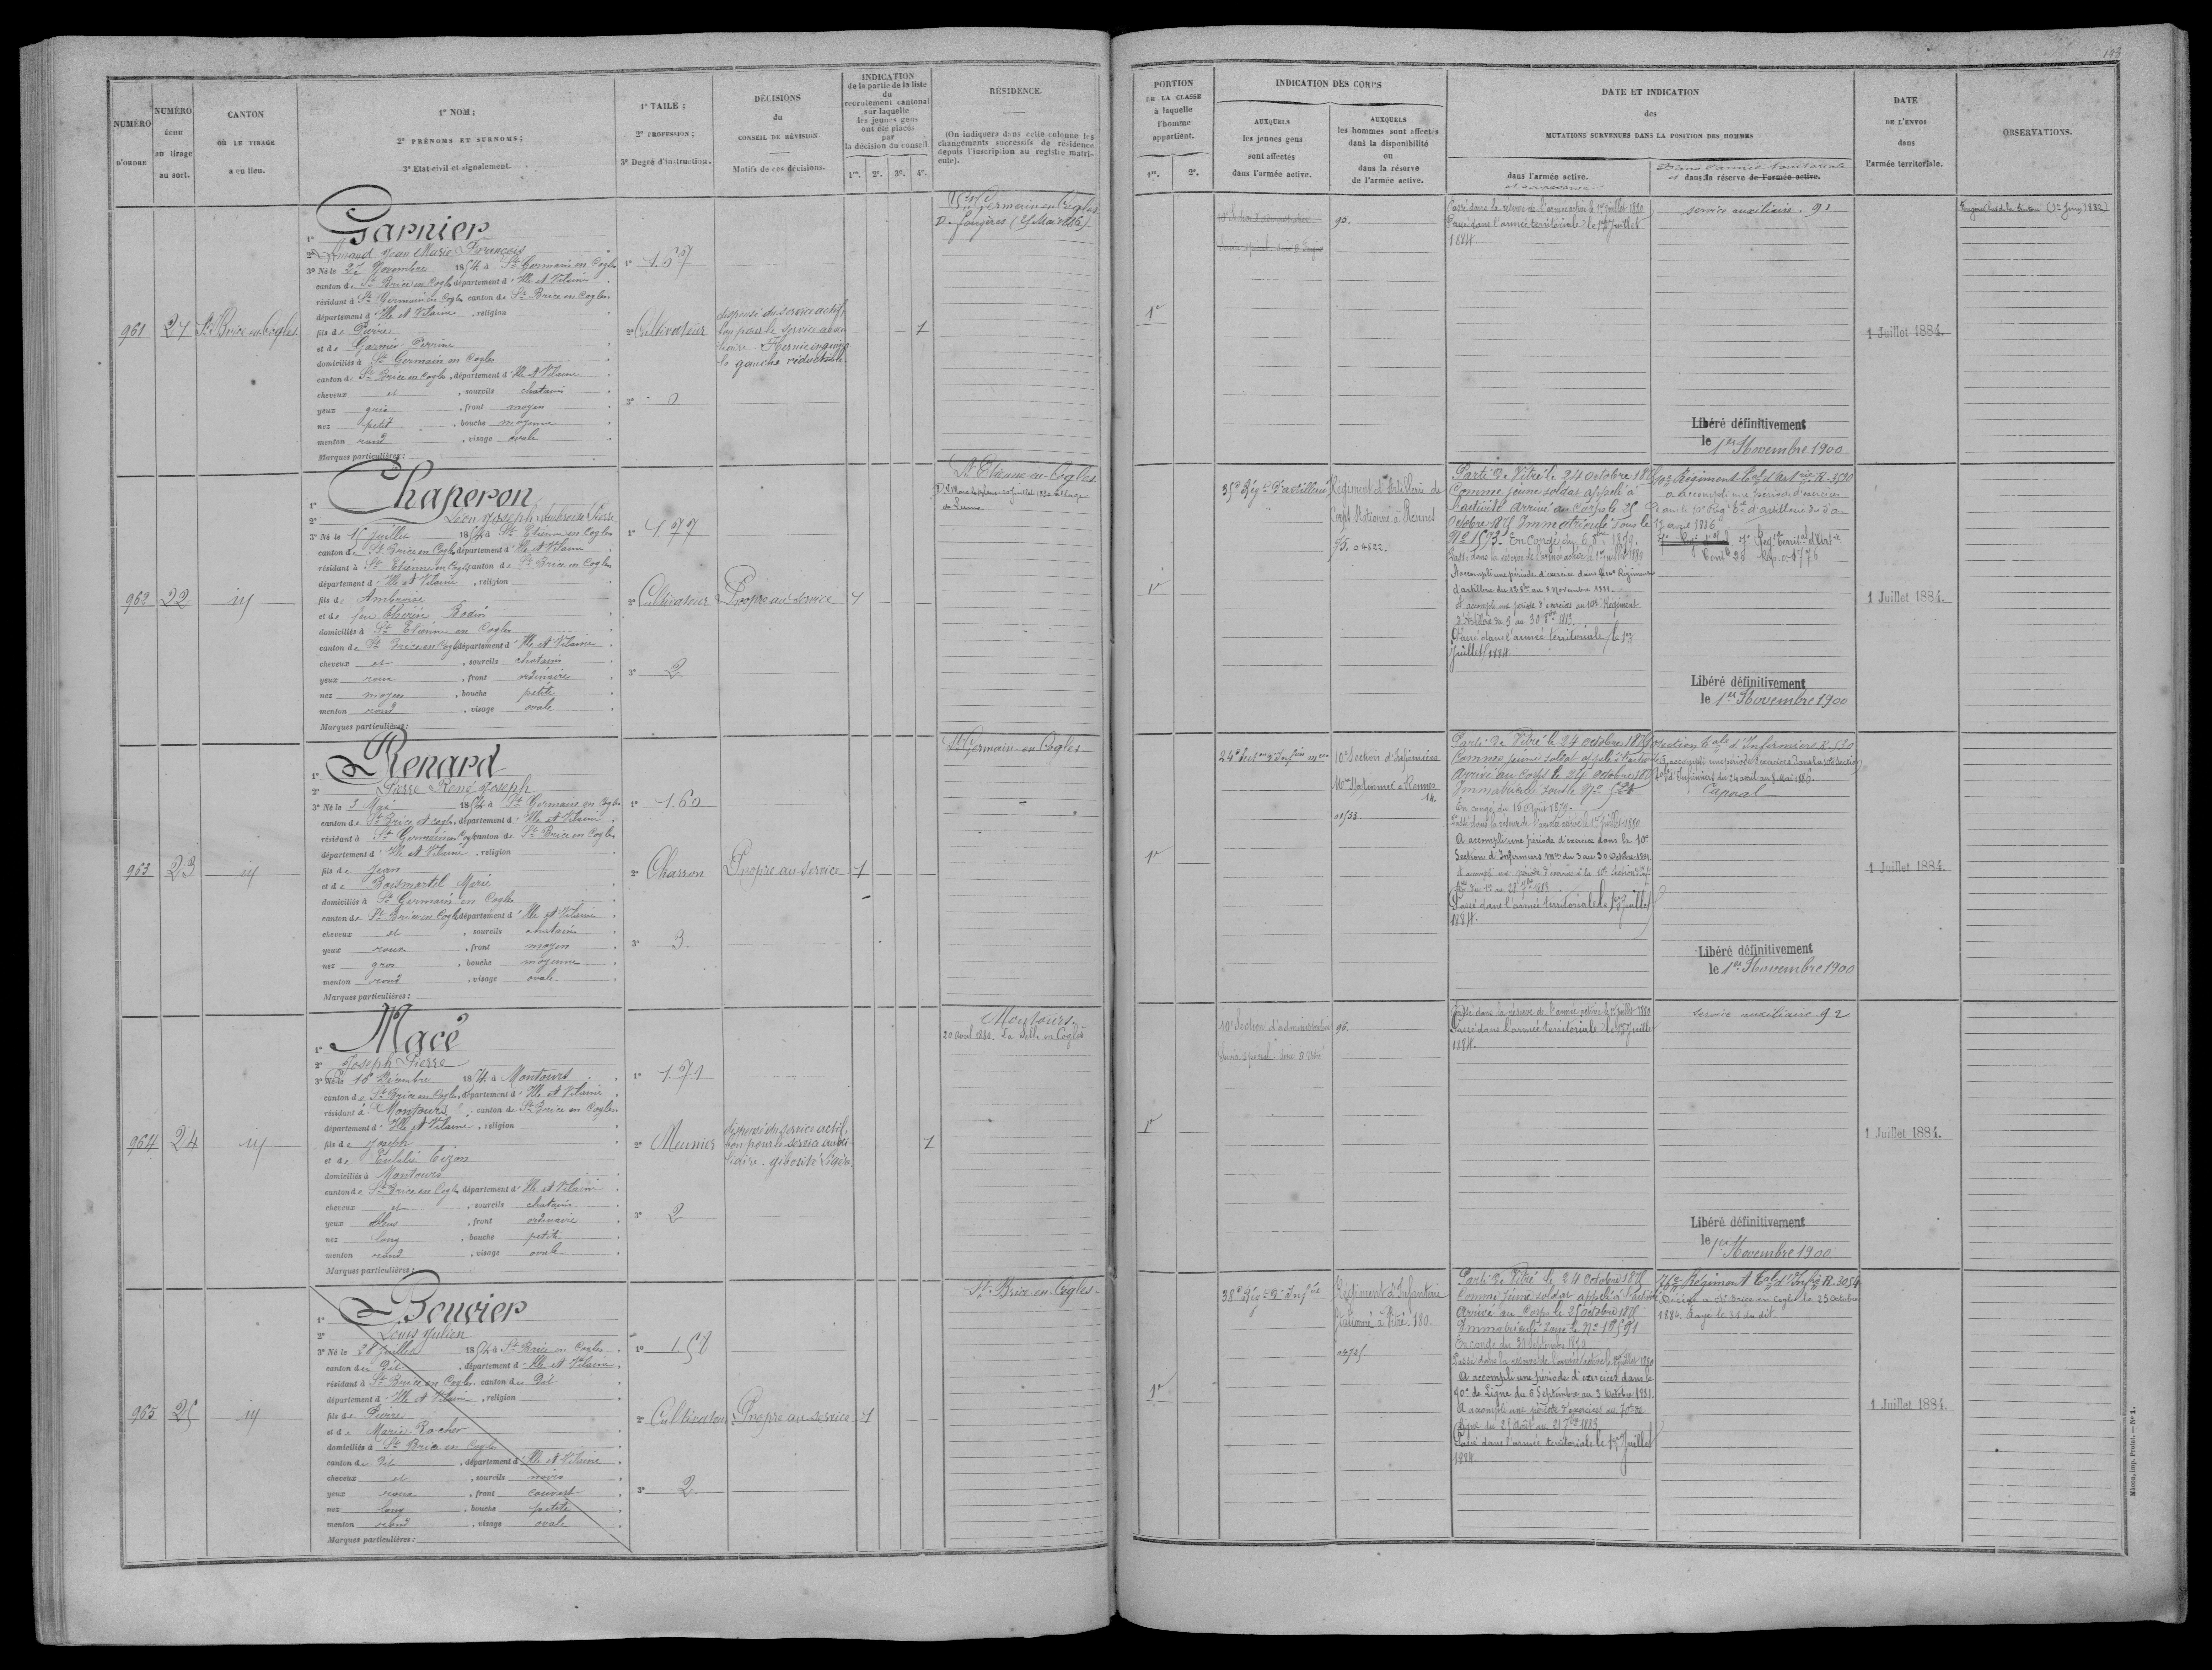 193
NUMÉRO D'ORDRE
NUMÉRO échu au tirage au sort.
CANTON OÙ LE TIRAGE a eu lieu.
1° NOM ;
2° PRÉNOMS ET SURNOMS ;
3° Etat civil et signalement.
1° TAILE ;
2° PROFESSION ;
3° Degré d'instruction.
DÉCISIONS
du
CONSEIL DE RÉVISION
Motifs de ces décisions.
INDICATION
de la partie de la liste
du
recrutement cantonal
sur laquelle
les jeunes gens
ont été placés
par
la décision du conseil.
1re. 2e. 3e. 4e.
RÉSIDENCE.
(On indiquera dans cette colonne les
changements successifs de résidence
depuis l'inscription au registre matri-
cule).
PORTION
DE LA CLASSE
à laquelle
l'homme
appartient.
1re. 2e.
INDICATION DES CORPS
AUXQUELS
les jeunes gens
sont affectés
dans l'armée active.
AUXQUELS
les hommes sont affectés
dans la disponibilité
ou
dans la réserve
de l'armée active.
DATE ET INDICATION
des
MUTATIONS SURVENUES DANS LA POSITION DES HOMMES
dans l'armée active.
et sa réserve
Dans l'armée territoriale
et dans la réserve de l'armée active.
DATE
DE L'ENVOI
dans
l'armée territoriale.
OBSERVATIONS.
961
27
St Brice-en-Cogles
1° Garnier
2° Armand Jean Marie François
3° Né le 22 Novembre 1854 à St Germain en Cogles
canton de St Brice en Cogles département d'Ille et Vilaine
résidant à St Germain en Cogles canton de St Brice en Cogles
département d'Ille et Vilaine, religion
fils de Pierre
et de Garnier Perrine
domiciliés à St Germain en Cogles
canton de St Brice en Cogles, département d'Ille et Vilaine
cheveux et, sourcils chatains
yeux gris, front moyen
nez petit, bouche moyenne
menton rond, visage ovale
Marques particulières :
1° 167
2° Cultivateur
3° 0
dispensé du service actif,
bon pour le service auxi-
liaire. Hernie inguina-
le gauche réductible
1
St Germain en Cogles
D. Fougères (21 Mai 1886)
1re
10e Section d'administration
95.
Passé dans la réserve de l'armée active le 1er juillet 1880
Passé dans l'armée territoriale le 1er Juillet
1884.
service auxiliaire. 91
Libéré définitivement
le 1er Novembre 1900
1 Juillet 1884.
962
22
id
1° Chaperon
2° Léon Joseph Ambroise Pierre
3° Né le 15 Juillet 1854 à St Etienne en Cogles
canton de St Brice en Cogles département d'Ille et Vilaine
résidant à St Etienne en Cogles canton de St Brice en Cogles
département d'Ille et Vilaine, religion
fils de Ambroise
et de feu Thérèse Bodin
domiciliés à St Etienne en Cogles
canton de St Brice en Cogles département d'Ille et Vilaine
cheveux et, sourcils chatains
yeux roux, front ordinaire
nez moyen, bouche petite
menton rond, visage ovale
Marques particulières :
1° 177
2° Cultivateur
3° 2
Propre au service
1
St Etienne-en-Cogles
1re
35e Régt d'artillerie
Régiment d'Artillerie de
Corps Stationné à Rennes
75. 04822.
Parti de Vitré le 24 octobre 1875
Comme jeune soldat appelé à
l'activité arrivé au Corps le 25
Octobre 1875 Immatriculé sous le
N° 1573. En congé du 6 8bre 1879.
Passé dans la réserve de l'armée active le 1er juillet 1880
A accompli une période d'exercice dans le 10e Régiment
d'artillerie du 12 8bre au 8 Novembre 1881.
A accompli une période d'exercices au 10e Régiment
d'Artillerie du 3 au 30 8bre 1883
Passé dans l'armée territoriale le 1er
Juillet 1884
10e Régiment tal d'Artrie R. 3590
a accompli une période d'exercices
Dans le 10e Régt tal d'artillerie du 3 au
17 avril 1886
Libéré définitivement
le 1er Novembre 1900
1 Juillet 1884.
963
23
id
1° Renard
2° Pierre René Joseph
3° Né le 3 Mai 1854 à St Germain en Cogles
canton de St Brice en Cogles, département d'Ille et Vilaine
résidant à St Germain en Cogles canton de St Brice en Cogles
département d'Ille et Vilaine, religion
fils de Jean
et de Boismartel Marie
domiciliés à St Germain en Cogles
canton de St Brice en Cogles département d'Ille et Vilaine
cheveux et, sourcils chatains
yeux roux, front moyen
nez gros, bouche moyenne
menton rond, visage ovale
Marques particulières :
1° 160
2° Charron
3° 3.
Propre au service
1
St Germain-en-Cogles
1re
10e Section d'Infirmiers
Mres Stationnée à Rennes
14.
01533
Parti de Vitré le 24 octobre 1875
Comme jeune soldat appelé à l'activité
arrivé au Corps le 24 octobre 1875
Immatriculé sous le N° 524
En congé du 16 Août 1879.
Passé dans la réserve de l'armée active le 1er juillet 1880
A accompli une période d'exercice dans la 10e
Section d'Infirmiers Mres du 3 au 30 Octobre 1881.
A accompli une période d'exercices à la 10e Section d'Inf.
Passé dans l'armée territoriale le 1er Juillet
1884.
Section tale d'Infirmiers R. 530
A accompli une période d'exercices dans la 10e Section
tale d'Infirmiers du 24 avril au 8 Mai 1886.
Caporal
Libéré définitivement
le 1er Novembre 1900
1 Juillet 1884.
964
24
id
1° Macé
2° Joseph Pierre
3° Né le 16 Décembre 1854 à Montours
canton de St Brice en Cogles, département d'Ille et Vilaine
résidant à Montours, canton de St Brice en Cogles
département d'Ille et Vilaine, religion
fils de Joseph
et de Eulalie Tizon
domiciliés à Montours
canton de St Brice en Cogles département d'Ille et Vilaine
cheveux et, sourcils chatains
yeux bleus, front ordinaire
nez long, bouche petite
menton rond, visage ovale
Marques particulières :
1° 171
2° Meunier
3° 2
dispensé du service actif,
bon pour le service auxi-
liaire. gibosité légère.
1
Montours.
20 Avril 1880. La Selle en Coglès
1re
10e Section d'administration
96.
Passé dans la réserve de l'armée active le 1er juillet 1880
Passé dans l'armée territoriale le 1er Juillet
1884.
service auxiliaire 92
Libéré définitivement
le 1er Novembre 1900
1 Juillet 1884.
965
25
id
1° Bouvier
2° Louis Julien
3° Né le 28 Juillet 1854 à St Brice en Cogles
canton du dit, département d'Ille et Vilaine
résidant à St Brice en Cogles canton du dit
département d'Ille et Vilaine, religion
fils de Pierre
et de Marie Rocher
domiciliés à St Brice en Cogles
canton du dit, département d'Ille et Vilaine
cheveux et, sourcils noirs
yeux roux, front couvert
nez long, bouche petite
menton rond, visage ovale
Marques particulières :
1° 158
2° Cultivateur
3° 2
Propre au service
1
St Brice-en-Cogles.
1re
38e Régt d'Infrie
Régiment d'Infanterie
Stationné à Vitré. 180.
04725
Parti de Vitré le 24 Octobre 1875
Comme jeune soldat appelé à l'activité
Arrivé au Corps le 25 octobre 1875
Immatriculé sous le N° 18591
En congé du 30 septembre 1879
Passé dans la réserve de l'armée active le 1er juillet 1880
A accompli une période d'exercices dans le
70e de Ligne du 6 Septembre au 3 Octobre 1881.
A accompli une période d'exercices au 70e de
Ligne du 25 Août au 21 7bre 1883
Passé dans l'armée territoriale le 1er Juillet
1884
76e Régiment tal d'Infie R. 3054
Décédé à St Brice en Cogles le 25 Octobre
1884. Rayé le 31 du dit.
1 Juillet 1884.
Mâcon, imp. Protat. — N° 1.